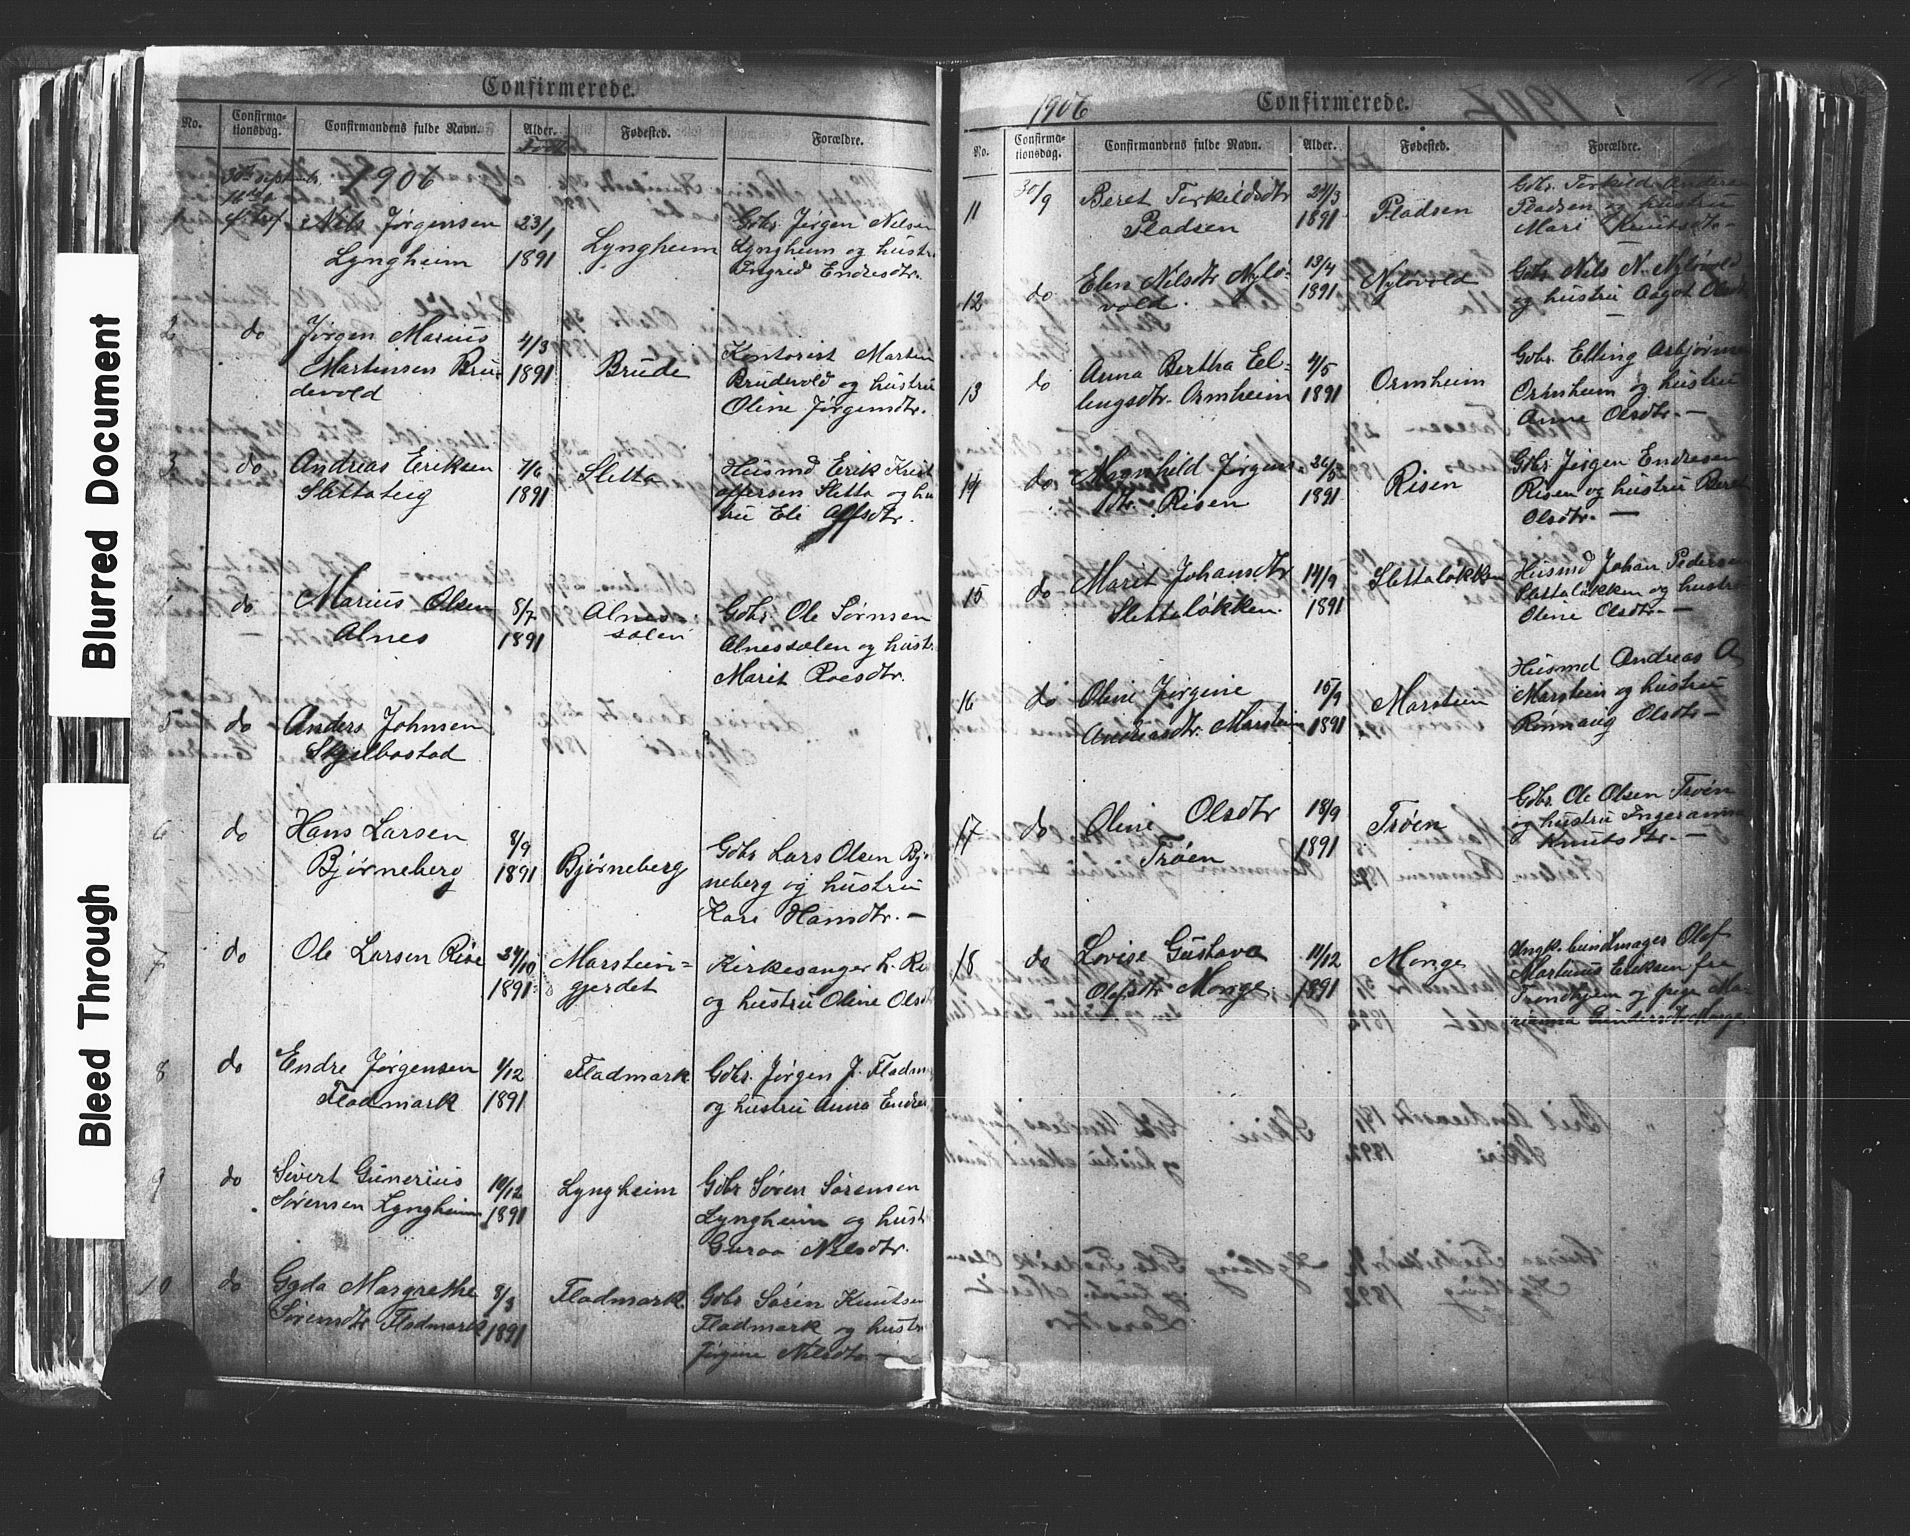 Blurred Document
Bleed Through
Confirmerede.
No.
Confirma-
tionsdag.
Confirmandens fulde Navn.
Alder.
Fødested.
Forældre.
1906
1
Nils Jørgensen
Lyngheim
23/1
1891
Lyngheim
Gbr. Jørgen Nilsen
Lyngheim og hustru
Ingrid Endresdtr.
2
do
Jørgen Marius
Martinsen Bru-
devold
4/3
1891
Brude
Kontorist Martin
Brudevold og hustru
Oline Jørgensdtr.
3
do
Andreas Eriksen
Slettateig
7/6
1891
Sletta
Husmd Erik Krist
offersen Sletta og hu
tru Eli
4
do
Marius Olsen
Alnes
8/7
1891
Alnes-
sølen
Gbr. Ole Sørnsen
Alnessølen og hust
Marit Roesdtr.
5
do
Anders Johnsen
Skjelbostad
6
do
Hans Larsen
Bjørneberg
8/9
1891
Bjørneberg
Gbr Lars Olsen Bjø
neberg og hustru
Kari Hansdtr. —
7
do
Ole Larsen Rise
24/10
1891
Marstein=
gjerdet
Kirkesanger L. Ri
og hustru Oline Olsd
8
do
Endre Jørgensen
Fladmark
1/12
1891
Fladmark
Gbr. Jørgen J. Fladm
og hustru Anna Endre
9
do
Sivert Gunerius
Sørensen Lyngheim
10/12
1891
Lyngheim
Gbr Søren Sørensen
Lyngheim og hust
Guroa Nilsdtr.
10
do
Gyda Margrethe
Sørensdtr Fladmark
8/3
1891
Fladmark
Gbr Søren Knutsen
Fladmark og hustr
Jørgine Nilsdtr —
1906
Confirmerede.
No.
Confirma-
tionsdag.
Confirmandens fulde Navn.
Alder.
Fødested.
Forældre.
11
30/9
Beret Terkildsdtr
Pladsen
24/3
1891
Pladsen
Gbr. Terkild Anders
Pladsen og hustru
Mari Knutsdtr —
12
do
Elen Nilsdtr Nylø-
vold.
13/4
1891
Nyløvold
Gbr. Nils N. Nyløvold
og hustru Aagot
13
do
Anna Bertha El-
lingsdtr. Ormheim
4/5
1891
Ormheim
Gbr. Elling Asbjørns
Ormheim og hustru
Anne Olsdtr. —
14
do
Magnhild Jørgens-
dtr. Risen
26/8
1891
Risen
Gbr Jørgen Endresen
Risen og hustru Beret
Olsdtr. —
15
do
Marit Johansdtr
Slettaløkken
14/9
1891
Slettaløkken
Husmd Johan Pedersen
Slettaløkken og hustru
Oline Olsdtr —
16
do
Oline Jørgine
Andreasdtr. Marstein
15/9
1891
Marstein
Husmd Andreas A
Marstein og hustru
Rønnaug Olsdtr —
17
do
Oline Olsdtr
Trøen
18/9
1891
Trøen
Gbr. Ole Olsen Trøen
og hustru Ingeranna
Knutsdtr. —
18
do
Lovise Gustava
Olafsdtr Monge
11/12
1891
Monge
Ungk. buntmager Olaf
Martinus Eriksen fra
Trondhjem og pige Ma-
rianna Gundersdtr Monge